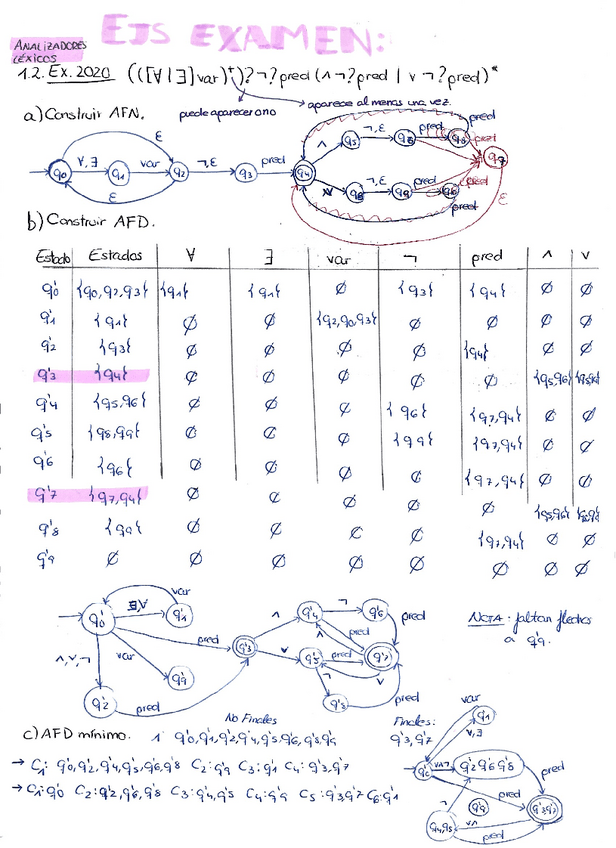 EJS EXAMEN:
ANALIZADORES
LÉXICOS
1.2. Ex. 2020 (([∀|∃]var)⁺)?¬?pred(∧¬?pred | ∨¬?pred)*
puede aparecer o no
aparece al menos una vez.
a) Construir AFN.
ε
∀,∃ var ¬,ε pred
q0 q1 q2 q3 q4
ε
∧ q5 ¬,ε pred pred pred
¬,ε pred pred
q7
pred
ε
b) Construir AFD.
Estado Estados ∀ ∃ var ¬ pred ∧ ∨
q'0 {q0,q2,q3} {q1} {q1} ∅ {q3} {q4} ∅ ∅
q'1 {q1} ∅ ∅ {q2,q0,q3} ∅ ∅ ∅ ∅
q'2 {q3} ∅ ∅ ∅ ∅ {q4} ∅ ∅
q'3 {q4} ∅ ∅ ∅ ∅ ∅ {q5,q6} {q8,q9}
q'4 {q5,q6} ∅ ∅ ∅ {q6} {q7,q4} ∅ ∅
q'5 {q8,q9} ∅ ∅ ∅ {q9} {q7,q4} ∅ ∅
q'6 {q6} ∅ ∅ ∅ ∅ {q7,q4} ∅ ∅
q'7 {q7,q4} ∅ ∅ ∅ ∅ ∅ {q5,q6} {q8,q9}
q'8 {q9} ∅ ∅ ∅ ∅ {q7,q4} ∅ ∅
q'9 ∅ ∅ ∅ ∅ ∅ ∅ ∅ ∅
var
q'0 ∃,∀ q'1
∧,∨,¬ var pred
q'9
q'2 pred
q'3 ∧ q'4 ¬ q'6 pred
∧ pred
∨ q'5 pred q'7
¬ ∨
pred
NOTA: faltan flechas
a q'9.
c) AFD mínimo.
No Finales
1: q'0,q'1,q'2,q'4,q'5,q'6,q'8,q'9
Finales:
q'3,q'7
→ C1: q'0,q'2,q'4,q'5,q'6,q'8 C2: q'9 C3: q'1 C4: q'3,q'7
→ C1: q'0 C2: q'2,q'6,q'8 C3: q'4,q'5 C4: q'9 C5: q'3,q'7 C6: q'1
var
q'1
∀,∃
q'0 q'2 q'6 q'8 pred
pred
¬ q'9 q'3,q'7
q'4,q'5 ∨∧
pred